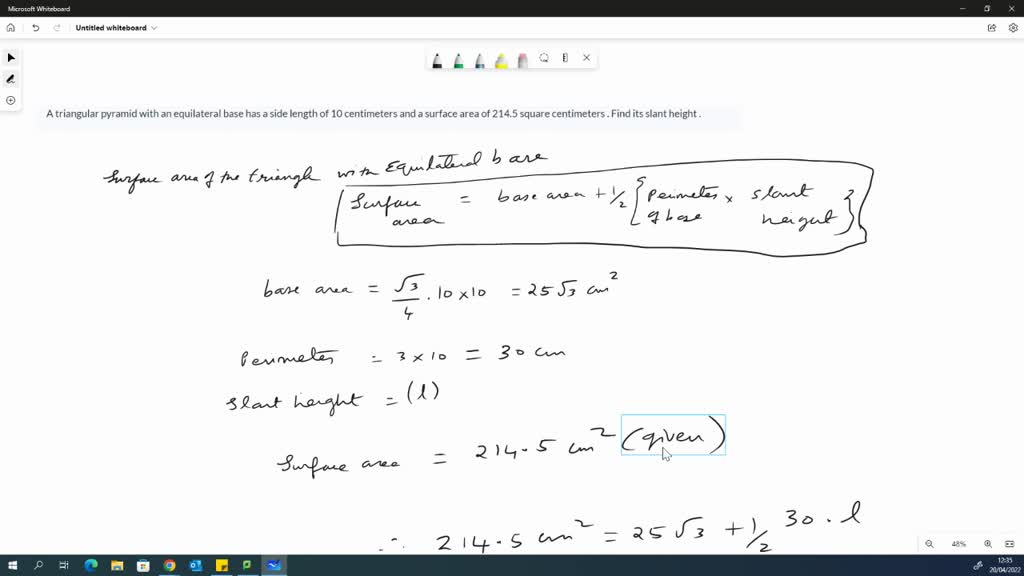 Microsoft Whiteboard
Untitled whiteboard
A triangular pyramid with an equilateral base has a side length of 10 centimeters and a surface area of 214.5 square centimeters . Find its slant height .
Surface area of the triangle with Equilateral base
Surface area = base area + 1/2 { Perimeter of base × slant height }
base area = √3/4 . 10 × 10 = 25 √3 cm²
Perimeter = 3 × 10 = 30 cm
Slant height = (l)
Surface area = 214.5 cm² (given)
∴ 214.5 cm² = 25 √3 + 1/2 30 . l
48%
12:35
20/04/2022